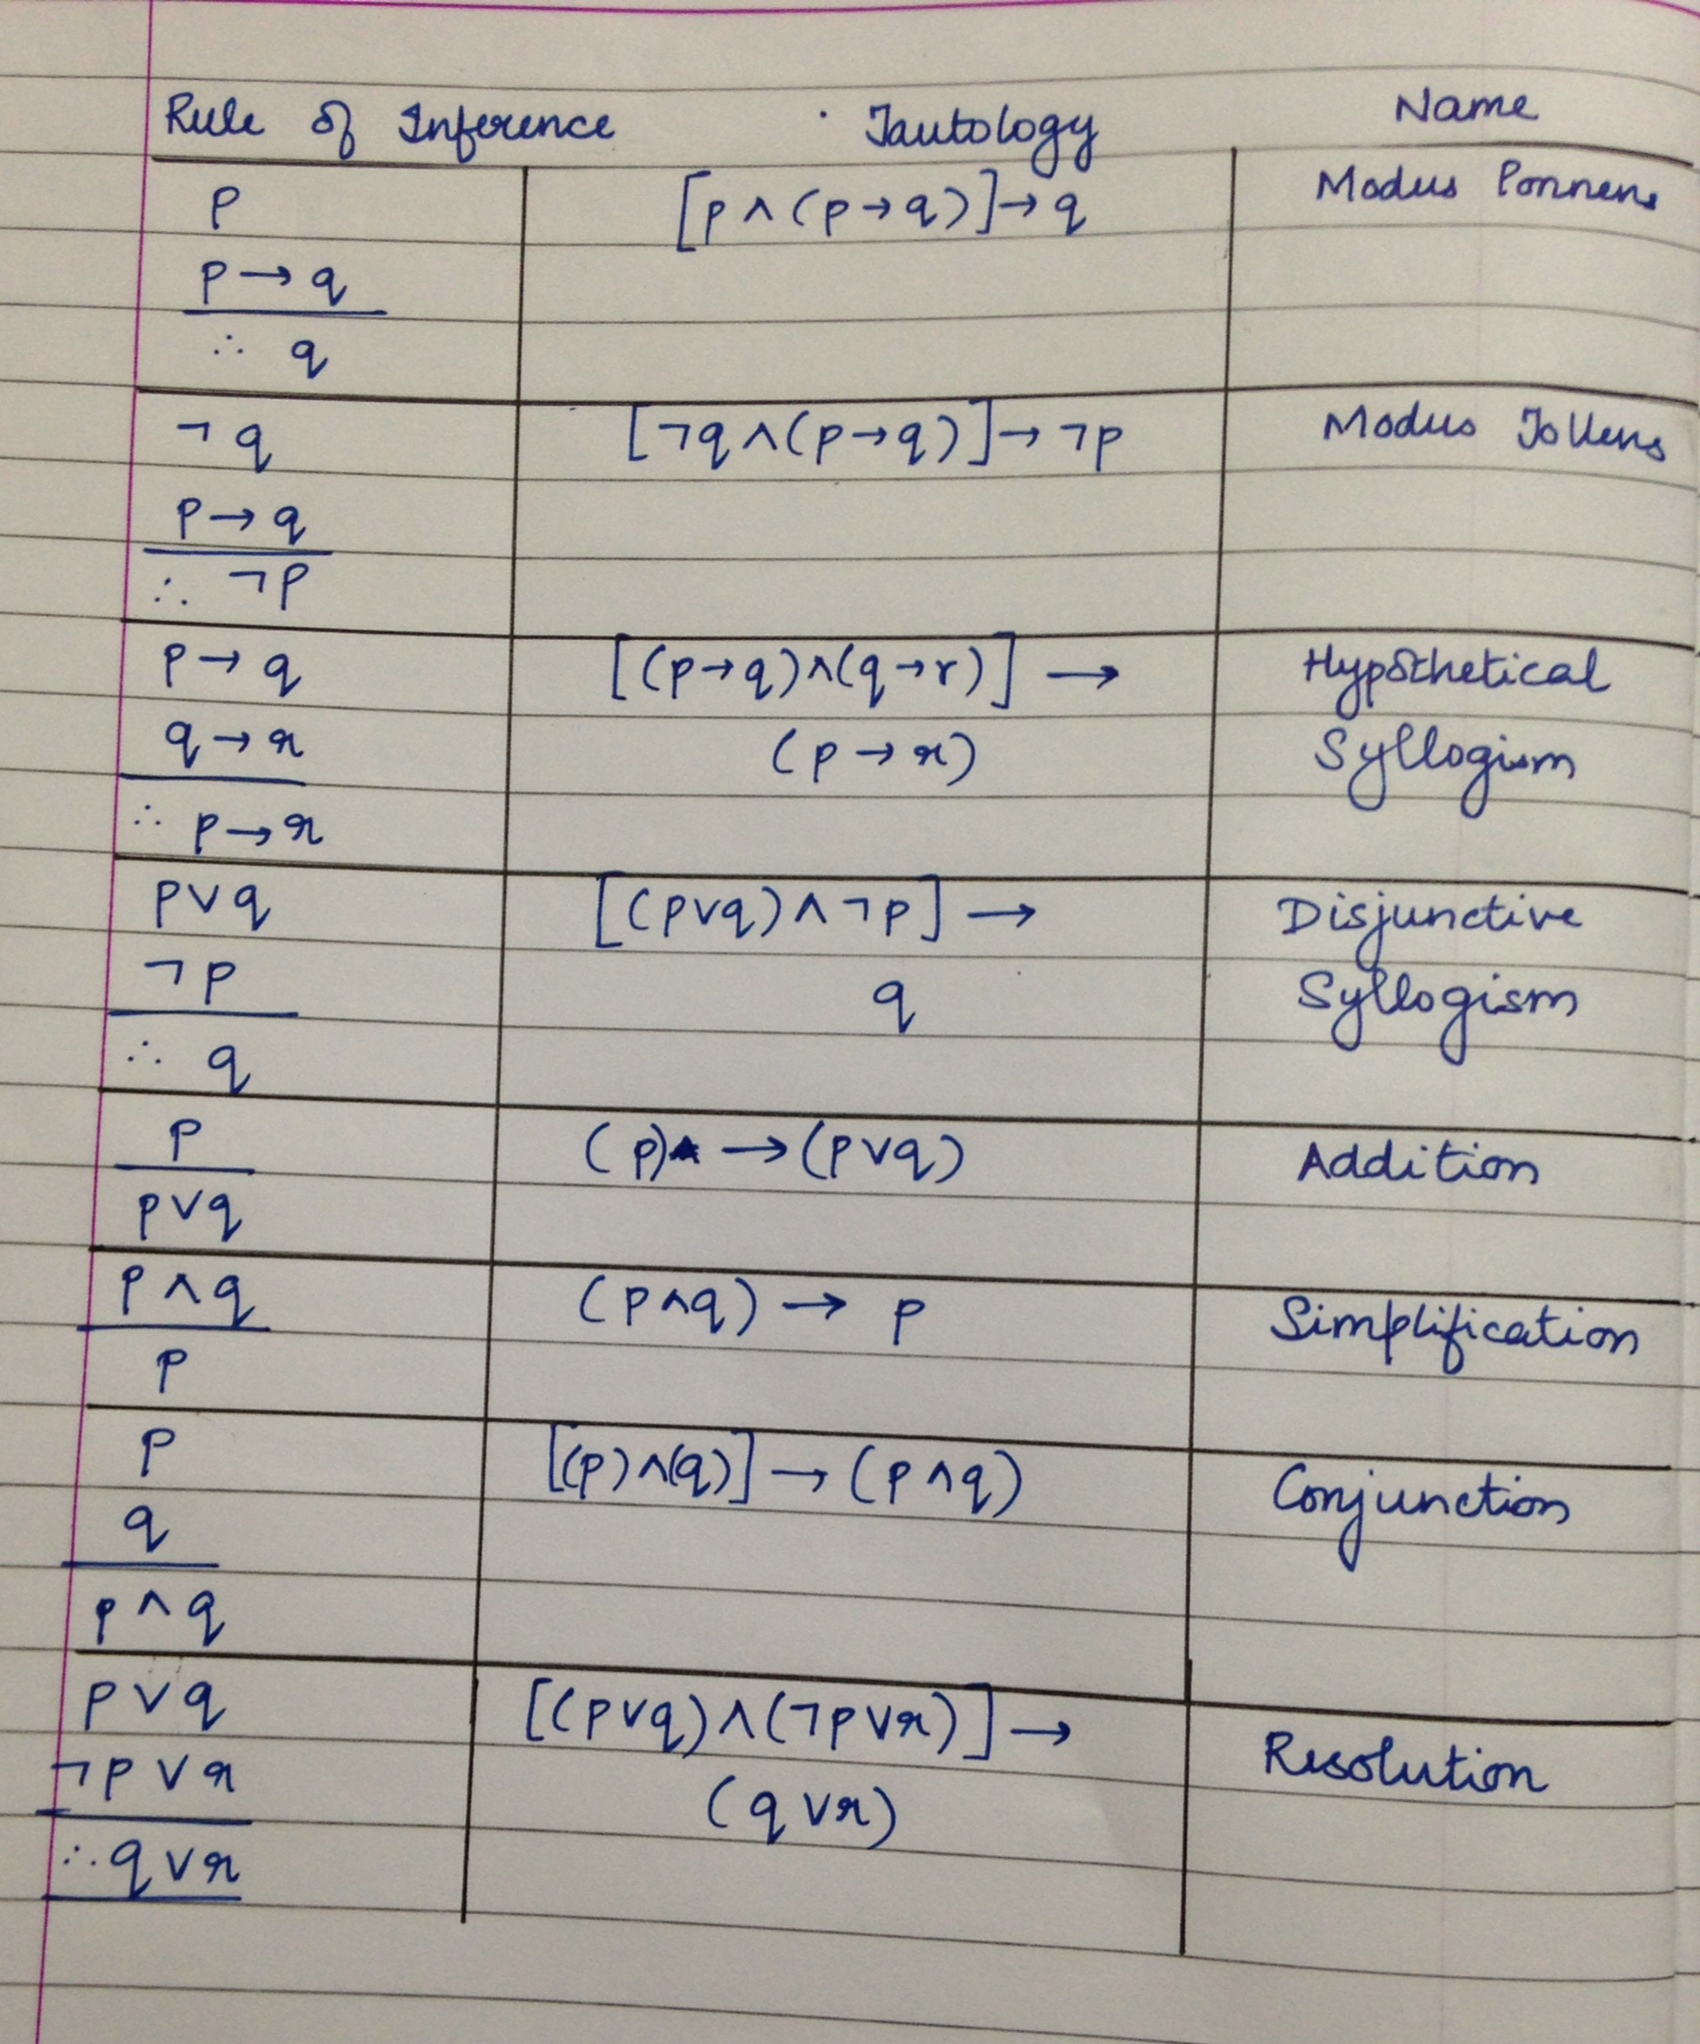 Rule of Inference Tautology Name
p [p ∧ (p → q)] → q Modus Ponnens
p → q
∴ q
¬ q [¬q ∧ (p → q)] → ¬p Modus Tollens
p → q
∴ ¬p
p → q [(p → q) ∧ (q → r)] → Hypothetical
q → r (p → r) Syllogism
∴ p → r
p ∨ q [(p ∨ q) ∧ ¬p] → Disjunctive
¬ p q Syllogism
∴ q
p (p) → (p ∨ q) Addition
p ∨ q
p ∧ q (p ∧ q) → p Simplification
p
p [(p) ∧ (q)] → (p ∧ q) Conjunction
q
p ∧ q
p ∨ q [(p ∨ q) ∧ (¬p ∨ r)] → Resolution
¬p ∨ r (q ∨ r)
∴ q ∨ r